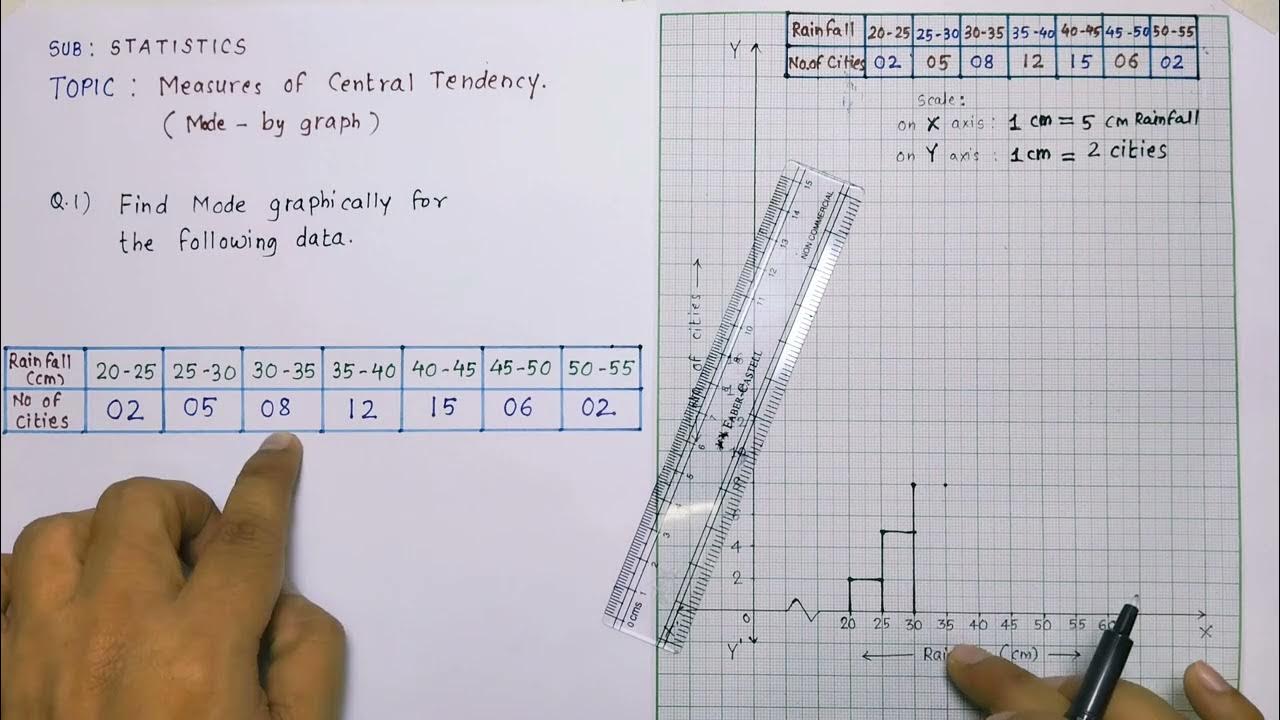 SUB: STATISTICS
TOPIC: Measures of Central Tendency.
(Mode - by graph)
Q.1) Find Mode graphically for
the following data.
Rainfall (cm) 20-25 25-30 30-35 35-40 40-45 45-50 50-55
No of Cities 02 05 08 12 15 06 02
Rainfall 20-25 25-30 30-35 35-40 40-45 45-50 50-55
No.of Cities 02 05 08 12 15 06 02
Scale:
on X axis: 1 cm = 5 cm Rainfall
on Y axis: 1 cm = 2 cities
Y
of cities
NON COMMERCIAL
FABER-CASTELL
0 cms 1 2 3 4 5 6 7 8 9 10 11 12 13 14 15
4
2
0
20 25 30 35 40 45 50 55 60
X
Y'
(cm)